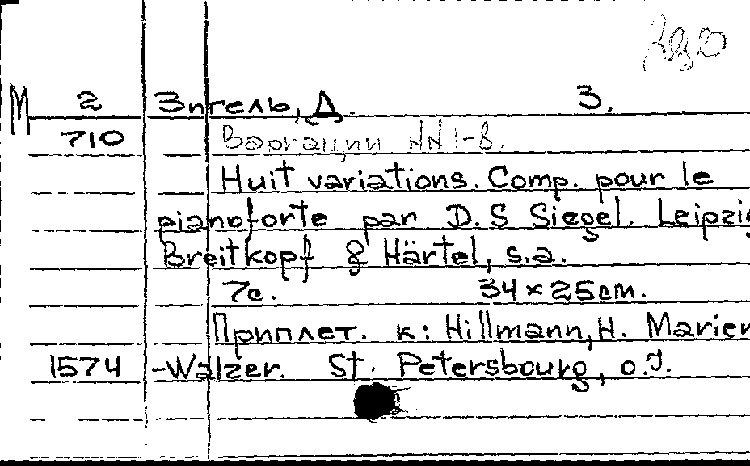 М 2 Зигель, Д. З.
710 Вариации NN 1-8.
Huit variations. Comp. pour le
pianoforte par D.S Siegel. Leipzig
Breitkopf & Härtel, s.a.
7с. 34 × 25 cm.
Приплет. к: Hillmann, H. Marien
1574 -Walzer. St. Petersbourg, o.J.